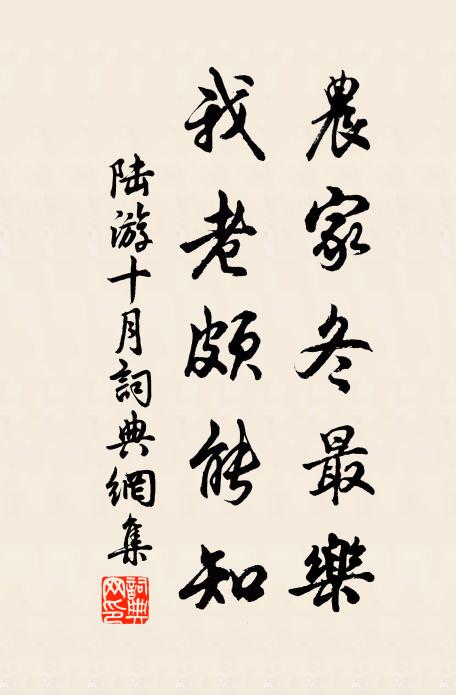 農家冬最樂
我老頗能知
陸游十月詞典網集
詞典網印